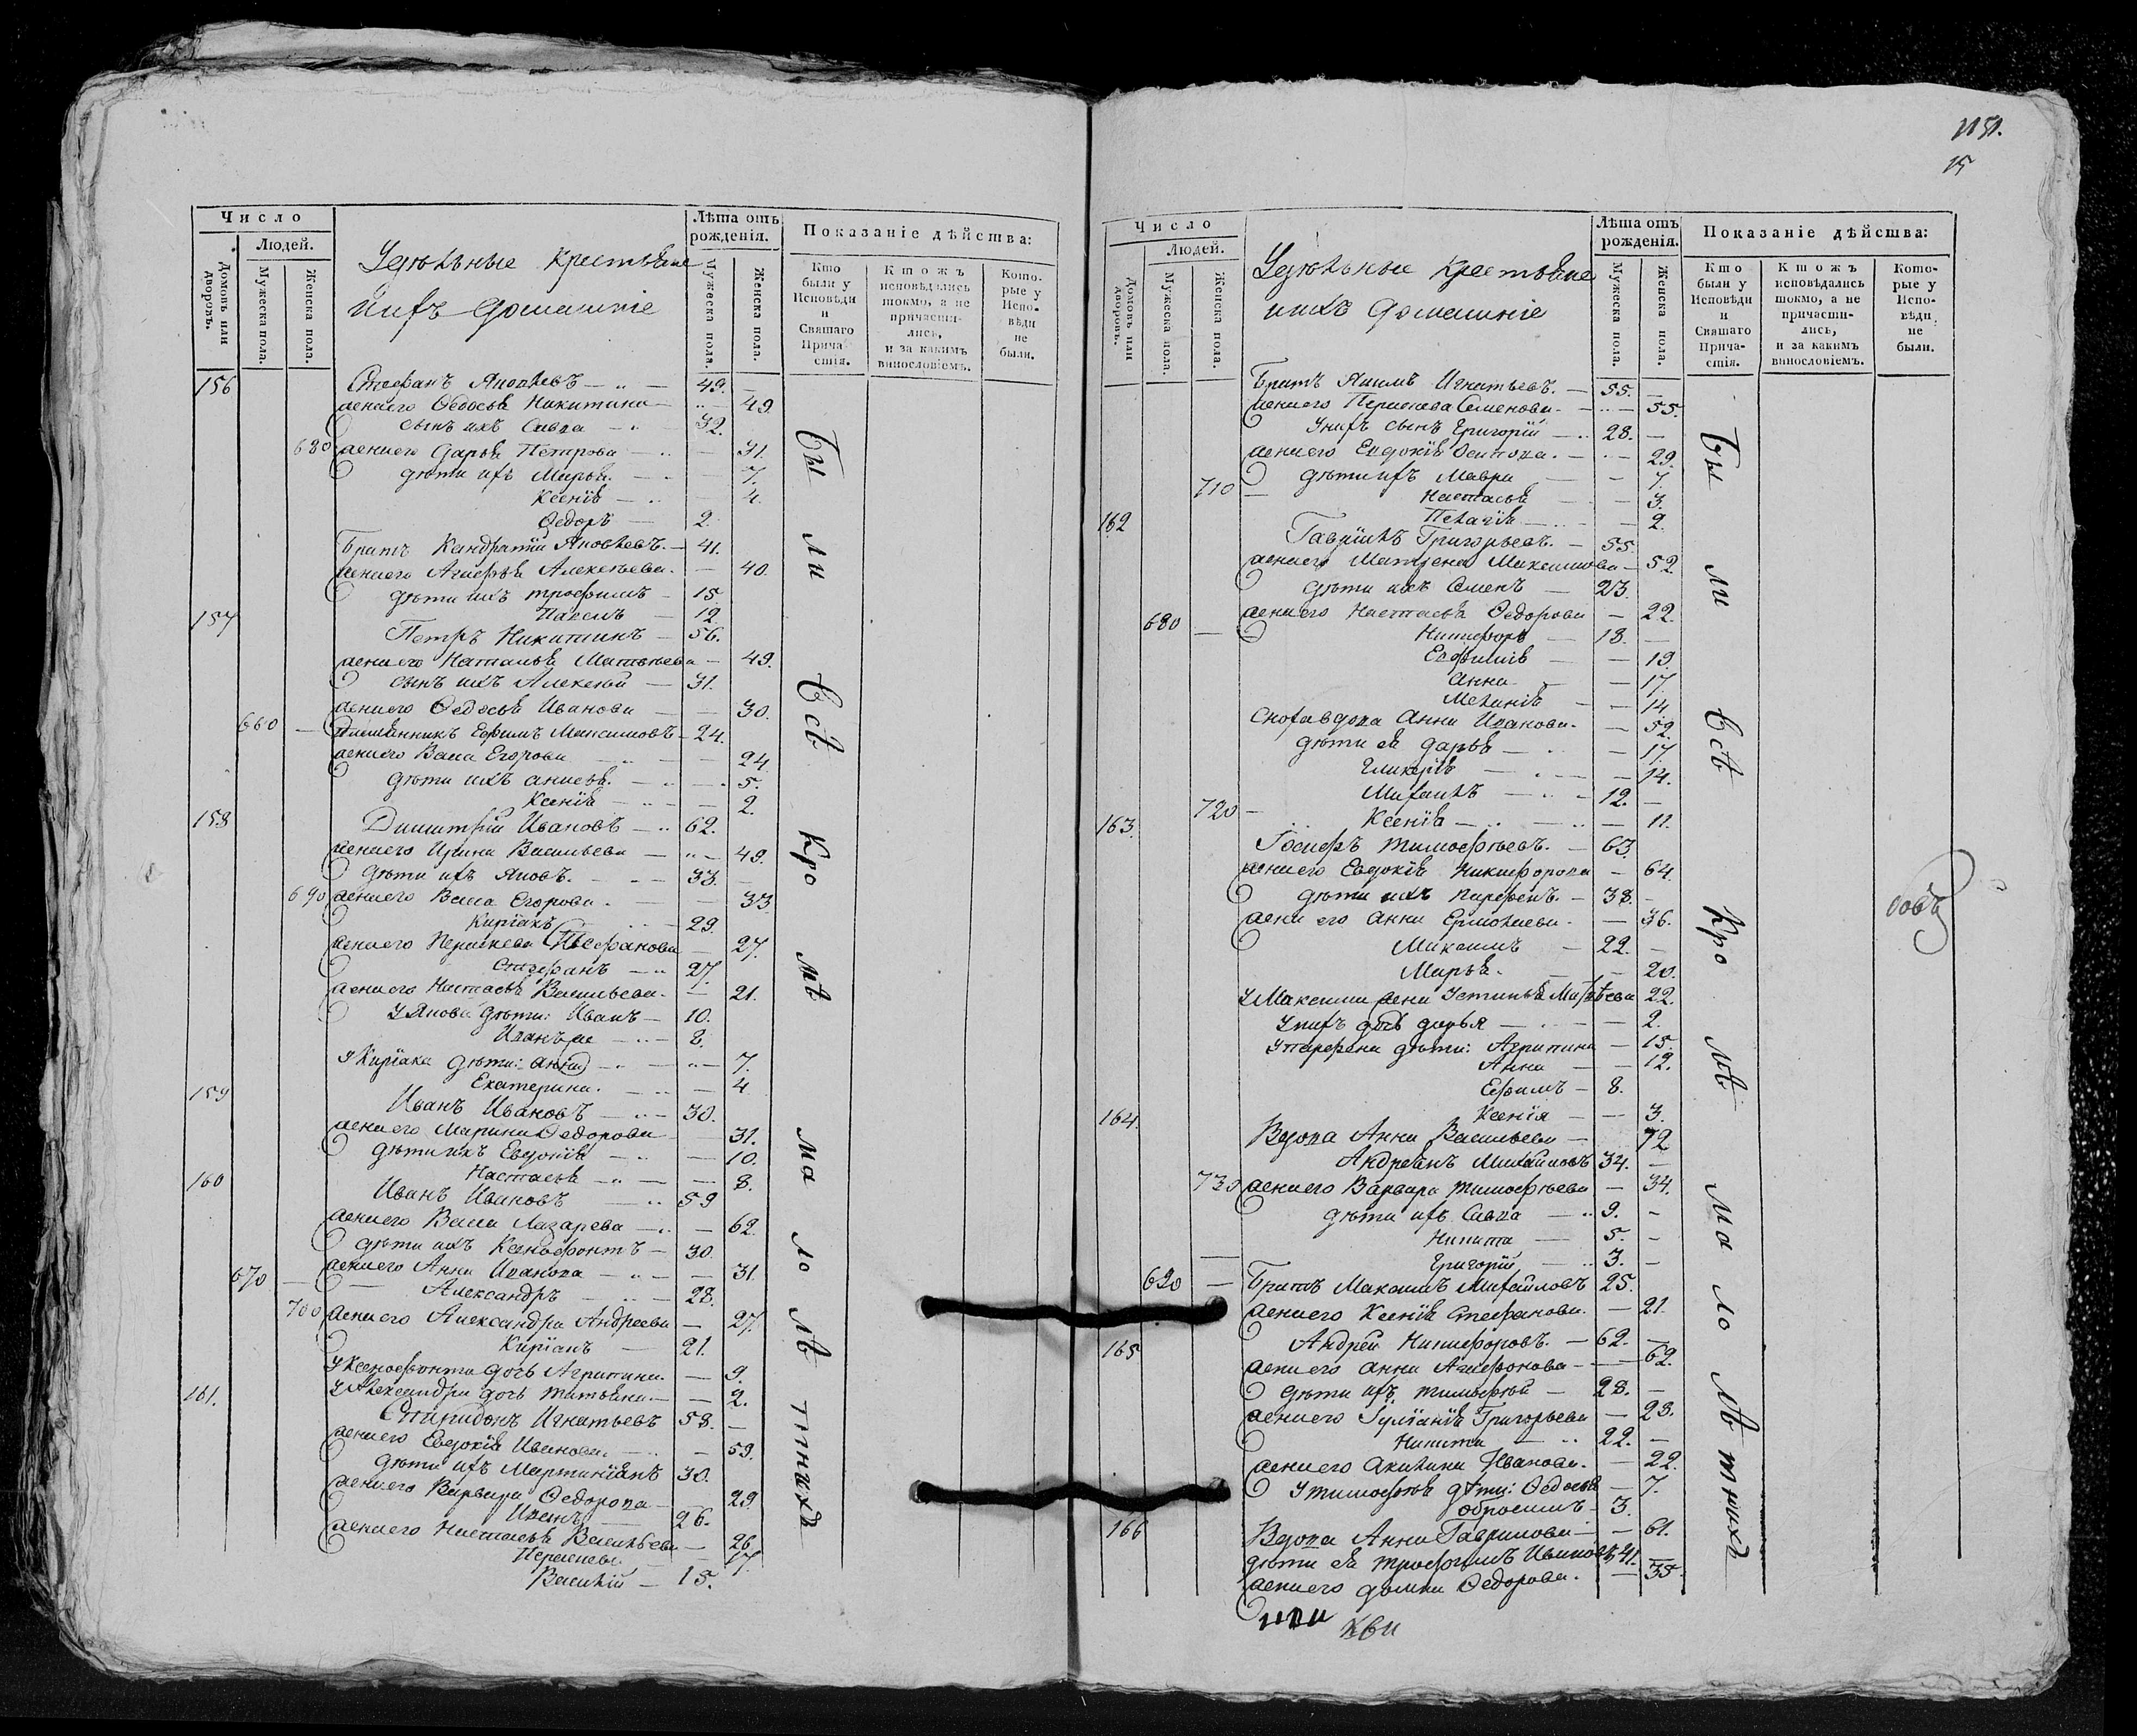 1151.
15
Число
Людей.
Домовъ или дворовъ.
Мужеска пола.
Женска пола.
Удѣльные крестьяне
ихъ домашніе
Лѣта отъ рожденія.
Мужеска пола.
Женска пола.
Показаніе дѣйства:
Кто были у Исповѣди и Святаго Причастія.
Ктожъ исповѣдались токмо, а не причастились, и за какимъ винословіемъ.
Которые у Исповѣди не были.
156 Стефанъ Яковлевъ 49.
жена его Федосья Никитина 49.
сынъ ихъ Савва 32.
680 жена его Дарья Петрова 31.
дѣти ихъ Марья 7.
Ксенія 4.
Федоръ 2.
Братъ Кандратій Яковлевъ 41.
жена его Агафья Алексѣева 40.
дѣти ихъ Трофимъ 15
Павелъ 12.
157 Петръ Никитинъ 56.
жена его Наталья Матвѣева 49.
сынъ ихъ Алексѣй 31.
жена его Федосья Иванова 30.
660 Племянникъ Ефимъ Максимовъ 24.
жена его Васса Егорова 24
дѣти ихъ Анисья 5.
Ксенія 2.
158 Димитрій Ивановъ 62.
жена его Ирина Васильева 49.
дѣти ихъ Яковъ 33.
690 жена его Васса Егорова 33
Киріакъ 29.
жена его Параскева Стефанова 27.
Стефанъ 27.
жена его Настасья Васильева 21.
У Якова дѣти: Иванъ 10.
Иванъ же 8.
У Киріака дѣти: Анна 7.
Екатерина 4
159 Иванъ Ивановъ 30.
жена его Марина Федорова 31.
дѣти ихъ Евдокія 10.
Настасья 8.
160 Иванъ Ивановъ 59
жена его Васса Лазарева 62.
дѣти ихъ Ксенофонтъ 30.
жена его Анна Иванова 31.
670 Александръ 28.
700 жена его Александра Андреева 27.
Киріанъ 21.
У Ксенофонта дочь Агрипина 9.
У Александра дочь Татьяна 2.
161. Спиридонъ Игнатьевъ 58.
жена его Евдокія Иванова 59.
дѣти ихъ Мартиніанъ 30.
жена его Варвара Федорова 29.
Иванъ 26.
жена его Настасья Васильева 26.
Параскева 17.
Василій 15.
Были всѣ кромѣ малолѣтныхъ
Число
Людей.
Домовъ или дворовъ.
Мужеска пола.
Женска пола.
Удѣльные крестьяне
ихъ домашніе
Лѣта отъ рожденія.
Мужеска пола.
Женска пола.
Показаніе дѣйства:
Кто были у Исповѣди и Святаго Причастія.
Ктожъ исповѣдались токмо, а не причастились, и за какимъ винословіемъ.
Которые у Исповѣди не были.
Братъ Якимъ Игнатьевъ 55.
жена его Параскева Семенова 55.
У нихъ сынъ Григорій 28.
жена его Евдокія Осипова 29.
дѣти ихъ Мавра 7.
710 Настасья 3.
Пелагія 2.
162 Гавріилъ Григорьевъ 55
жена его Матрена Максимова 52.
дѣти ихъ Семенъ 23.
жена его Настасья Федорова 22.
680 Никифоръ 18.
Евфимія 19.
Анна 17.
Меланія 14
Сноха вдова Анна Иванова 52.
дѣти ея Дарья 17.
Гликерія 14.
Михаилъ 12.
720 Ксенія 11.
163. Іосифъ Тимофѣевъ 63.
жена его Евдокія Никифорова 64.
дѣти ихъ Парфенъ 38.
жена его Анна Ермолаева 36.
Максимъ 22.
Марья 20.
У Максима жена Устинья Матвѣева 22.
У нихъ дочь Дарья 2.
У Парфена дѣти: Агрипина 15.
Анна 12.
Ефимъ 8.
Ксенія 3.
164. Вдова Анна Васильева 72
Андреянъ Михайловъ 34.
730 жена его Варвара Тимофѣева 34.
дѣти ихъ Савва 9.
Никита 5.
Григорій 3.
690 Братъ Максимъ Михайловъ 25.
жена его Ксенія Стефанова 21.
165 Андрей Никифоровъ 62.
жена его Анна Агафонова 62.
дѣти ихъ Тимофѣй 28.
жена его Іуліанія Григорьева 28.
Никита 22.
жена его Акилина Иванова 22.
У Тимофѣя дѣти: Федосья 7.
Абросимъ 3.
166 Вдова Анна Гаврилова 61.
дѣти ея Трофимъ Ивановъ 41.
жена его Домна Федорова 35.
Были всѣ кромѣ малолѣтныхъ